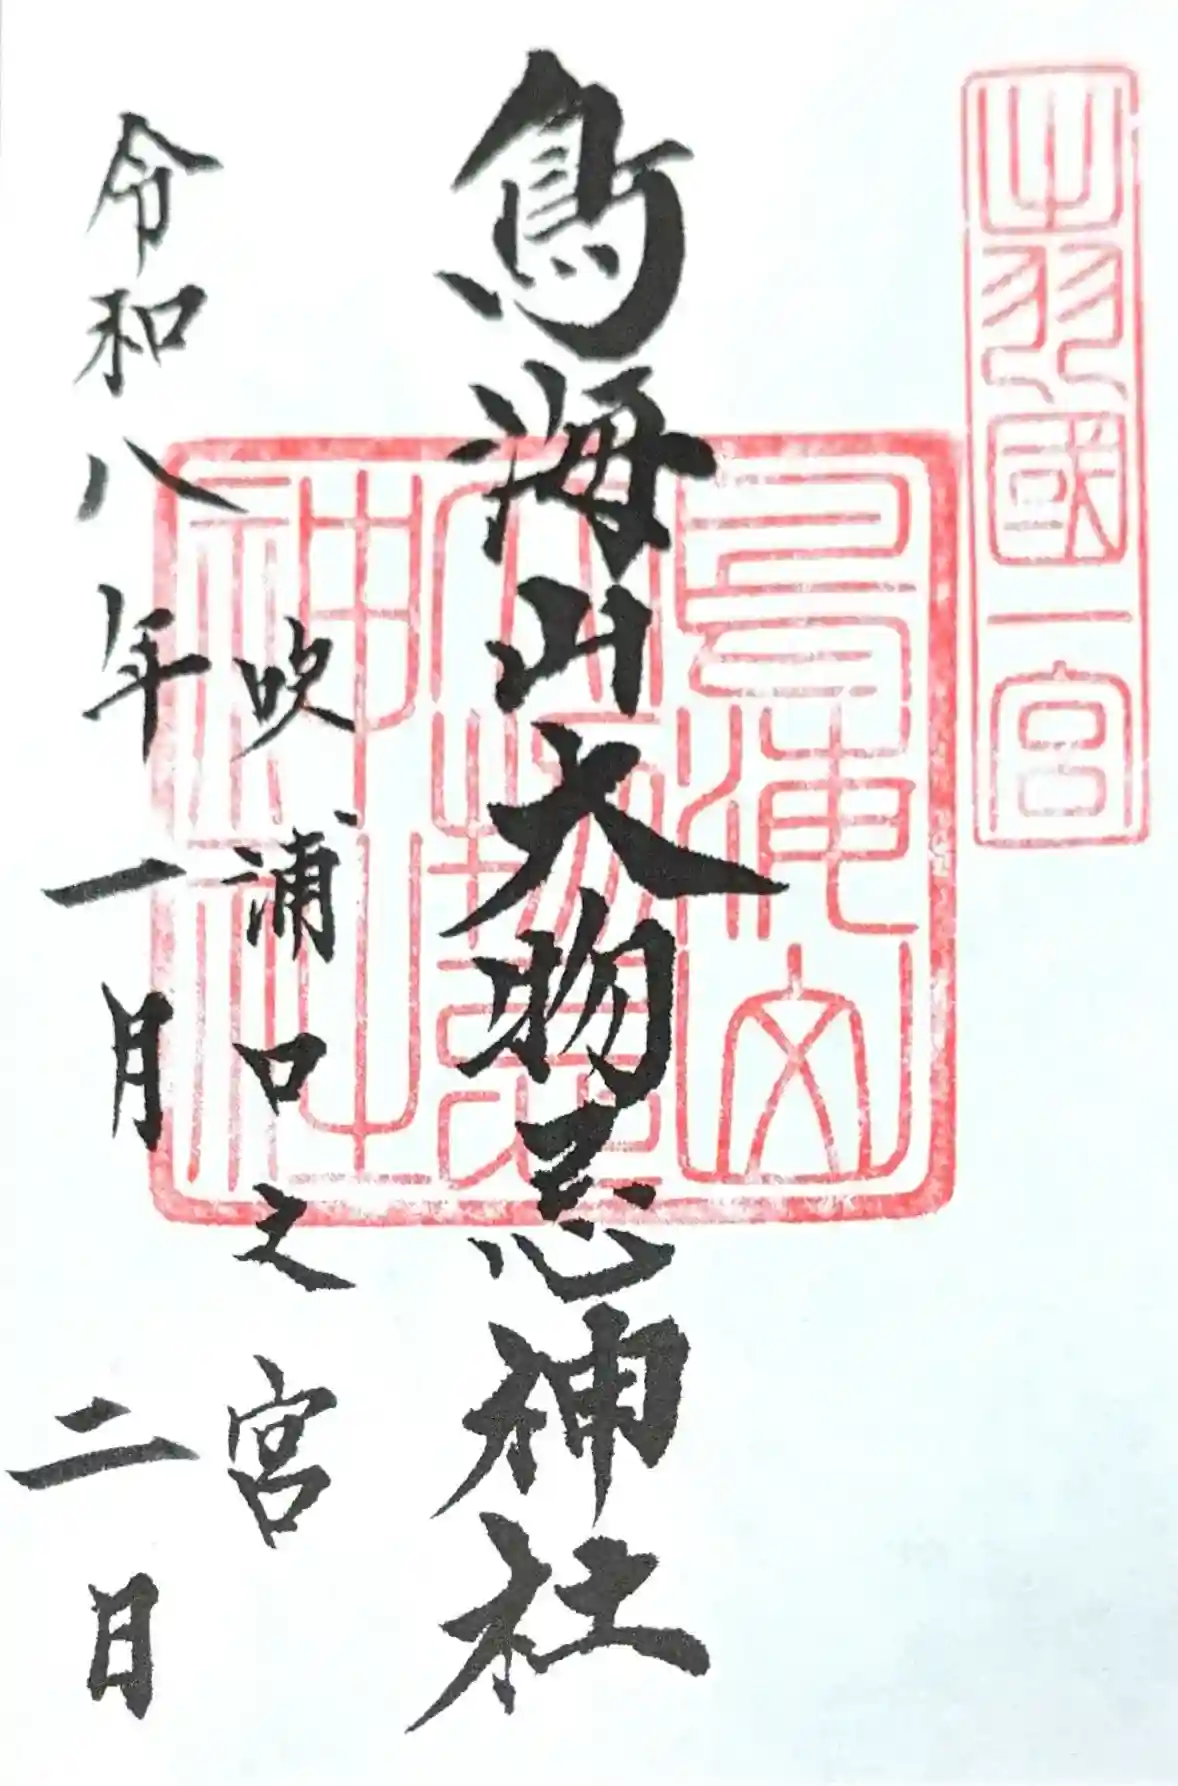 出羽國一宮
鳥海山大物忌神社
鳥海山
大物忌
神社
吹浦口之宮
令和八年一月二日